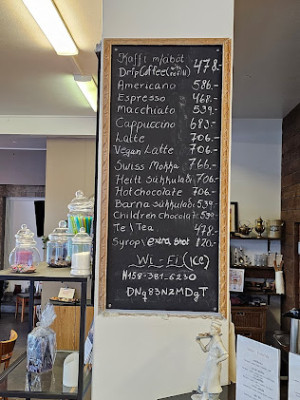 Kaffi m/ábót
Drip Coffee (refill) 478.-
Americano 586.-
Espresso 468.-
Macchiato 539.-
Cappuccino 685.-
Latte 706.-
Vegan Latte 706.-
Swiss Mokka 766.-
Heitt Súkkulaði 706.-
Hot chocolate 706.-
Barna súkkulaði 539.-
Children chocolate 539.-
Te \ Tea 478.-
Syrop \ extra shot 120.-
Wi-Fi (ICE)
N158-381-6230
DNq83NZMDgT